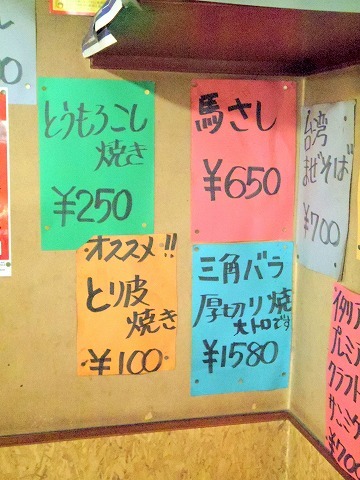 とうもろこし
焼き
¥250
馬さし
¥650
台湾
まぜそば
¥700
オススメ!!
とり皮
焼き
¥100
三角バラ
厚切り焼
大トロです
¥1580
イタリア
プレミア
クラフト
¥700